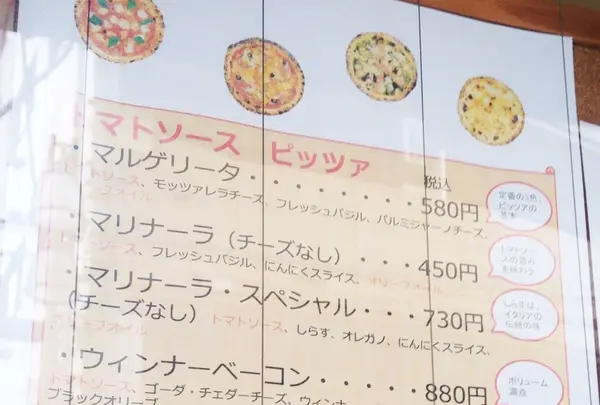 トマトソース ピッツァ
税込
・マルゲリータ・・・・・・・・580円
トマトソース、モッツァレラチーズ、フレッシュバジル、パルミジャーノチーズ、
オリーブオイル
定番の3色、
ピッツアの
基本
・マリナーラ（チーズなし）・・・450円
トマトソース、フレッシュバジル、にんにくスライス、オリーブオイル
トマトソー
スの旨み
を味わう
・マリナーラ・スペシャル・・・730円
（チーズなし）トマトソース、しらす、オレガノ、にんにくスライス、
オリーブオイル
しらすは、
イタリアの
伝統の味
・ウィンナーベーコン・・・・・880円
トマトソース、ゴーダ・チェダーチーズ、ウィンナー
ブラックオリーブ
ボリューム
満点